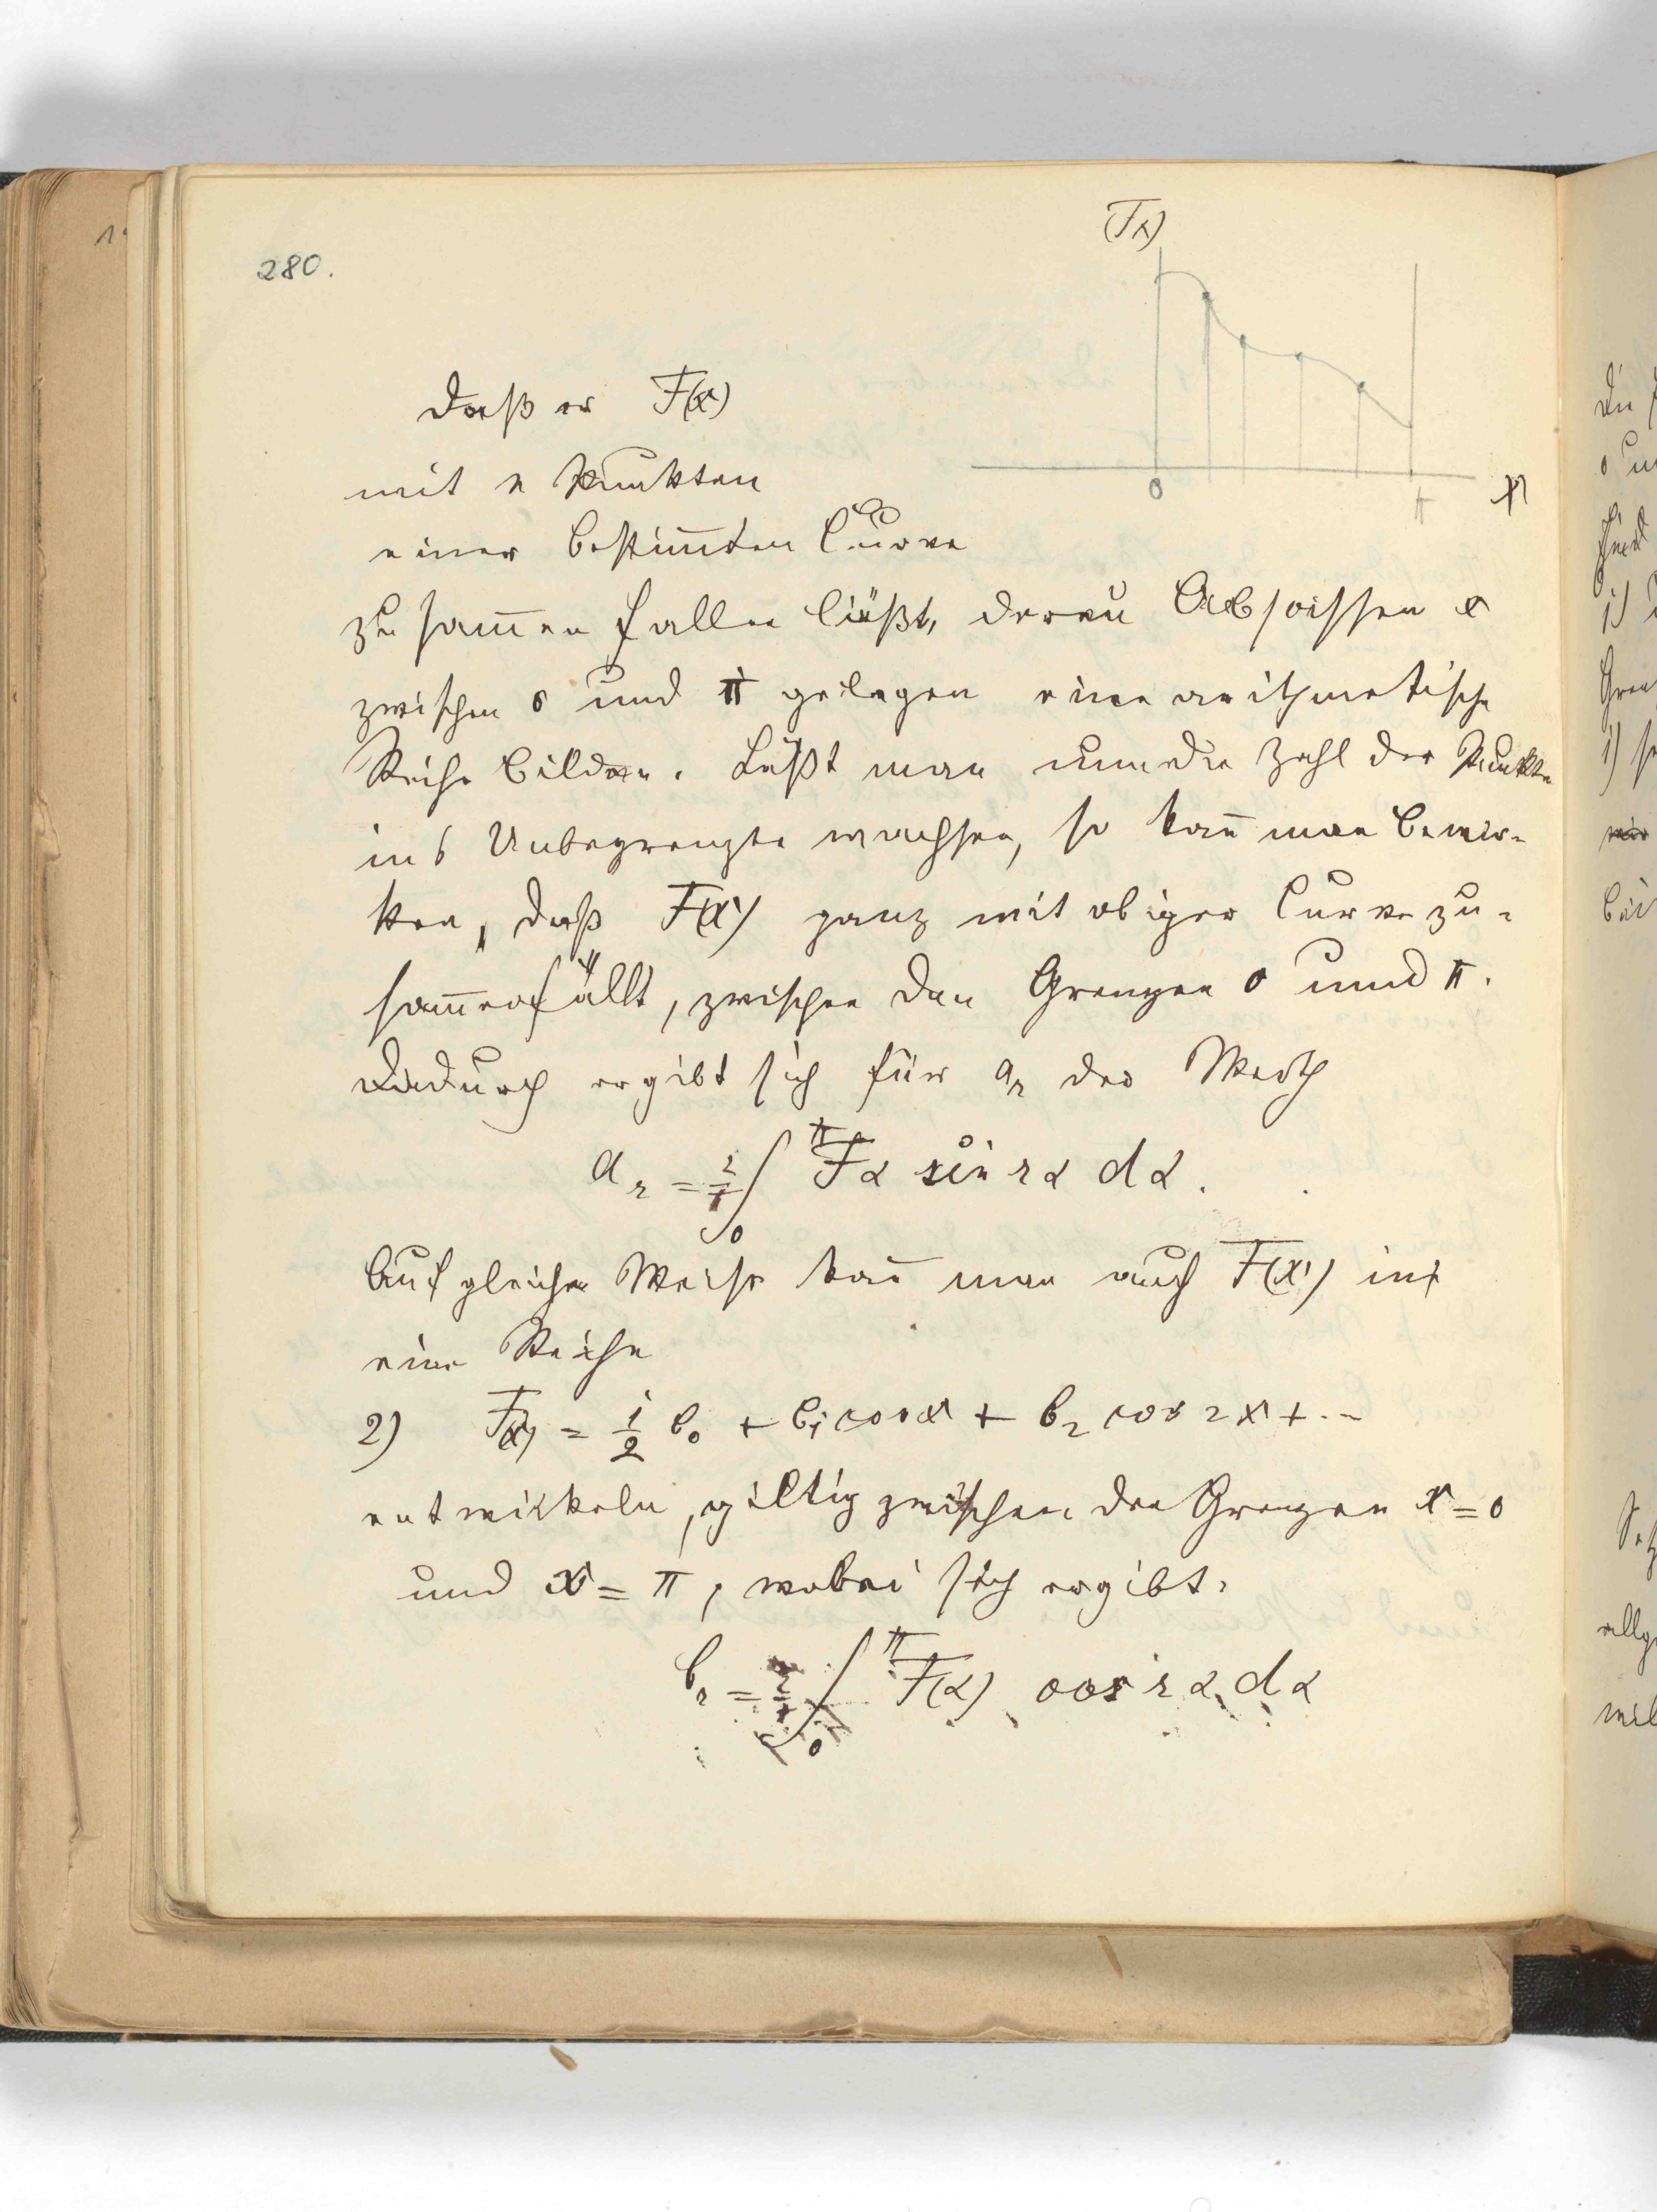 280.
(Fx)
0 π x
daß er F(x)
mit n Punkten
einer bestim̄ten Curve
zusam̄en fallen läßt, deren Abscissen x
zwischen 0 und π gelegen eine arithmetische
Reihe bilden. Läßt man nun die Zahl der Punkte
ins Unbegrenzte wachsen, so kan̄ man bewir-
ken, daß F(x) ganz mit obiger Curve zu-
sam̄enfällt, zwischen den Grenzen 0 und π.
Dadurch ergibt sich für a_r der Werth
a_r = 2/π ∫_0^π Fα sin rα dα.
Auf gleiche Weise kan̄ man auch F(x) in
eine Reihe
2) F(x) = 1/2 b_0 + b_1 cos x + b_2 cos 2x + ..
entwickeln, giltig zwischen den Grenzen x = 0
und x = π, wobei sich ergibt.
b_r = 2/π ∫_0^π F(α) cos rα dα